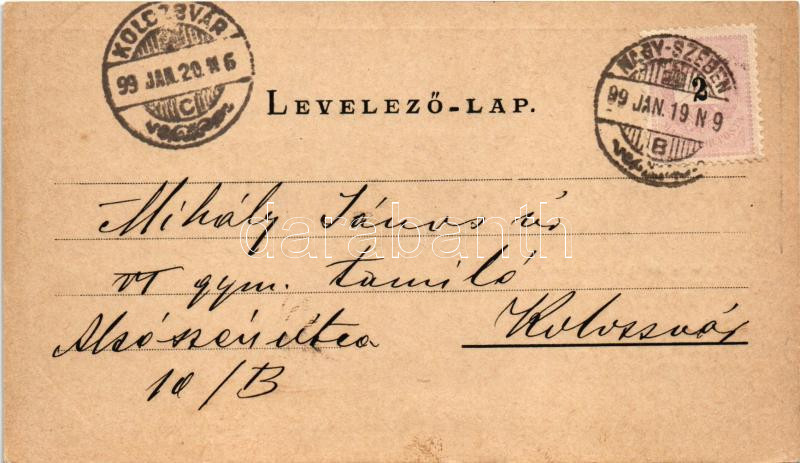 KOLOZSVÁR
99 JAN. 20. N 6
C
NAGY-SZEBEN
99 JAN. 19 N 9
B
2
LEVELEZŐ-LAP.
Mihály János úr
VI gym. tanuló
Alsószén utca
Kolozsvár
10/B
darabanth